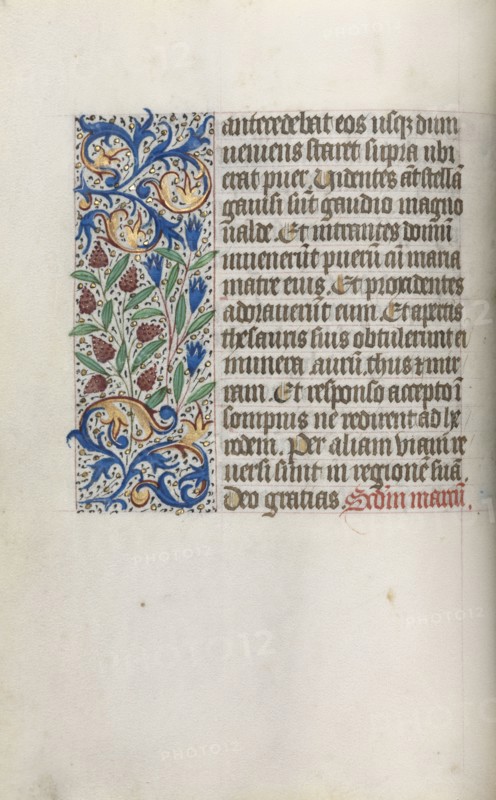 antecedebat eos usq3 dum
ueniens staret supra ubi
erat puer. Uidentes āt stellā
gauisi sūt gaudio magno
ualde. Et intrantes domū
inuenerūt puerū cū maria
matre eius. Et procidentes
adorauerūt eum. Et apertis
thesauris suis obtulerunt ei
munera. aurū. thus ⁊ mir
ram. Et responso accepto ī
sompnis ne redirent ad he
rodem. Per aliam uiam re
uersi sunt in regionē suā.
Deo gratias. Scdm marcū.
PHOTO12
PHOTO12
PHOTO12
PHOTO12